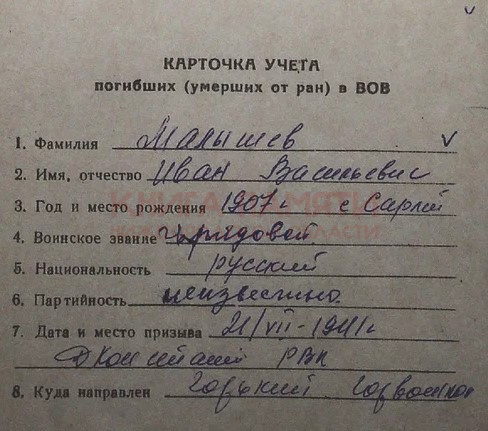 КАРТОЧКА УЧЕТА
погибших (умерших от ран) в ВОВ
1. Фамилия Малышев
2. Имя, отчество Иван Васильевич
3. Год и место рождения 1907 г с Сарлей
4. Воинское звание рядовой
5. Национальность русский
6. Партийность неизвестно
7. Дата и место призыва 21/VII-1941г
РВК
8. Куда направлен Горький